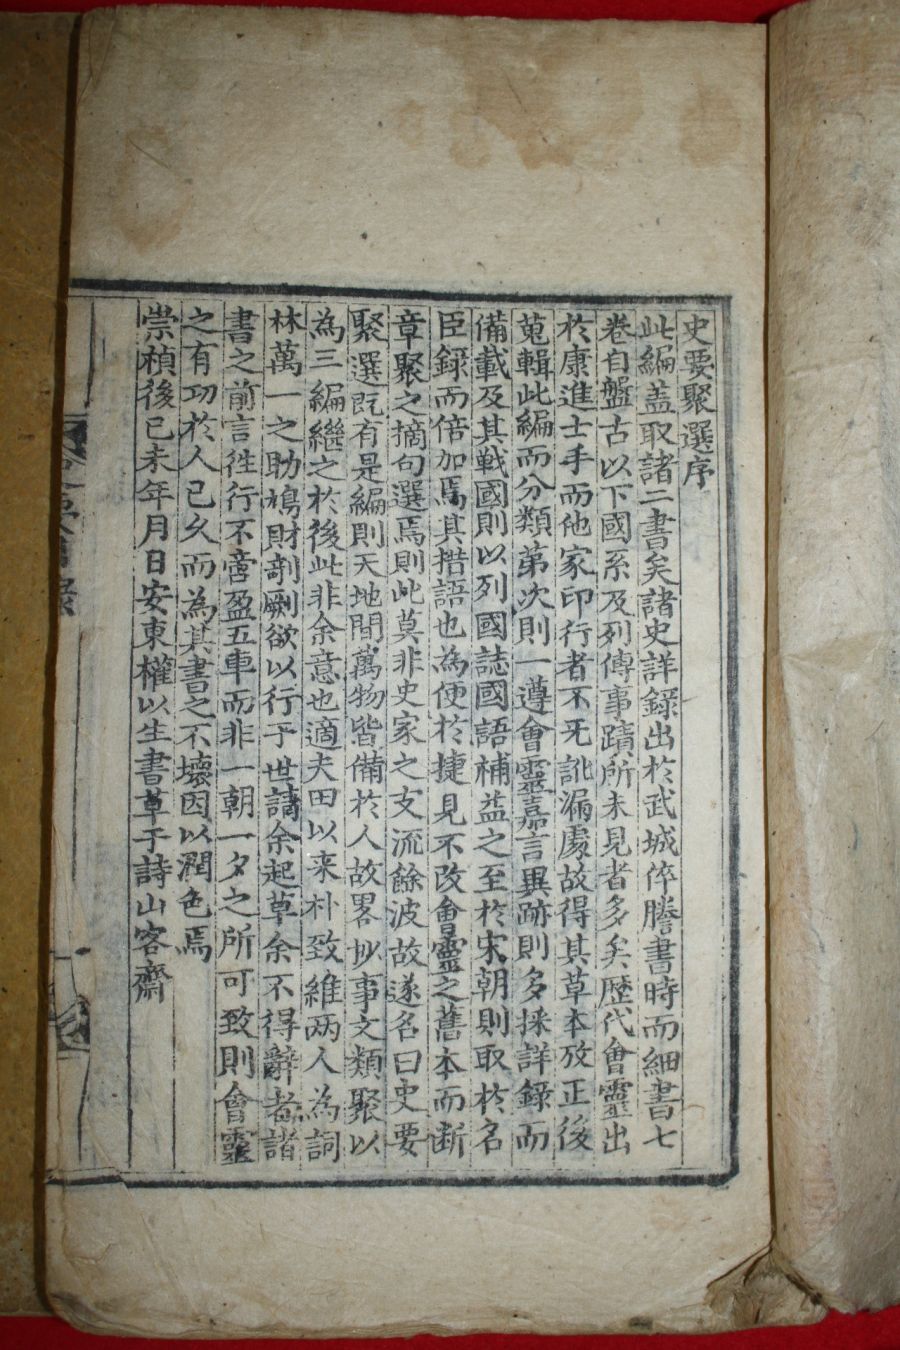 史要聚選序
此編盖取諸二書矣諸史詳録出於武城倅謄書時而細書七
卷自盤古以下國系及列傳事蹟所未見者多矣歷代會靈出
於康進士手而他家印行者不无訛漏處故得其草本攷正後
蒐輯此編而分類第次則一遵會靈嘉言異跡則多採詳録而
備載及其戰國則以列國誌國語補益之至於宋朝則取於名
臣録而倍加焉其措語也為便於捷見不改會靈之舊本而斷
章聚之摘句選焉則此莫非史家之支流餘波故遂名曰史要
聚選旣有是編則天地間萬物皆備於人故畧抄事文類聚以
為三編繼之於後此非余意也適夫田以来朴致維两人為詞
林萬一之助鳩財剞劂欲以行于世請余起草余不得辭者諸
書之前言徃行不啻盈五車而非一朝一夕之所可致則會靈
之有功於人已久而為其書之不壞因以潤色焉
崇禎後己未年月日安東權以生書草于詩山客齋